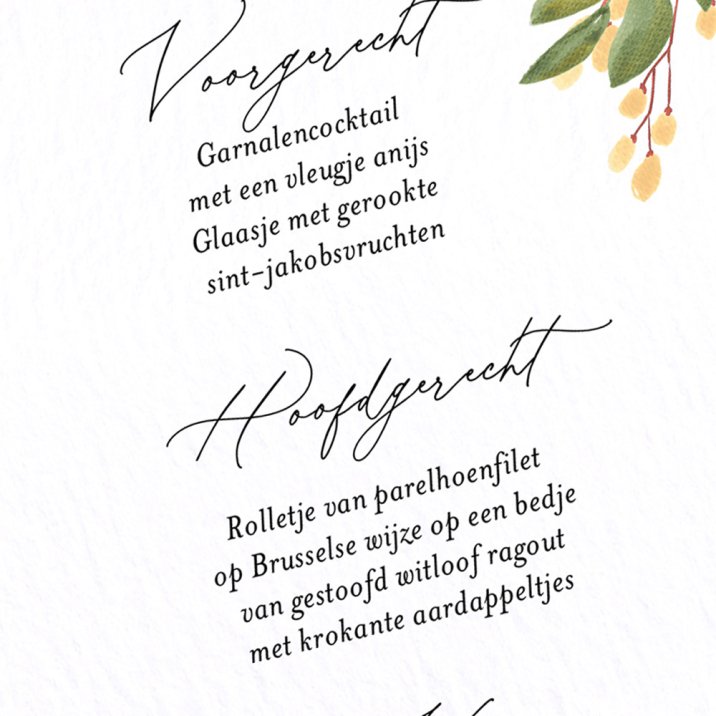 Voorgerecht
Garnalencocktail
met een vleugje anijs
Glaasje met gerookte
sint-jakobsvruchten
Hoofdgerecht
Rolletje van parelhoenfilet
op Brusselse wijze op een bedje
van gestoofd witloof ragout
met krokante aardappeltjes